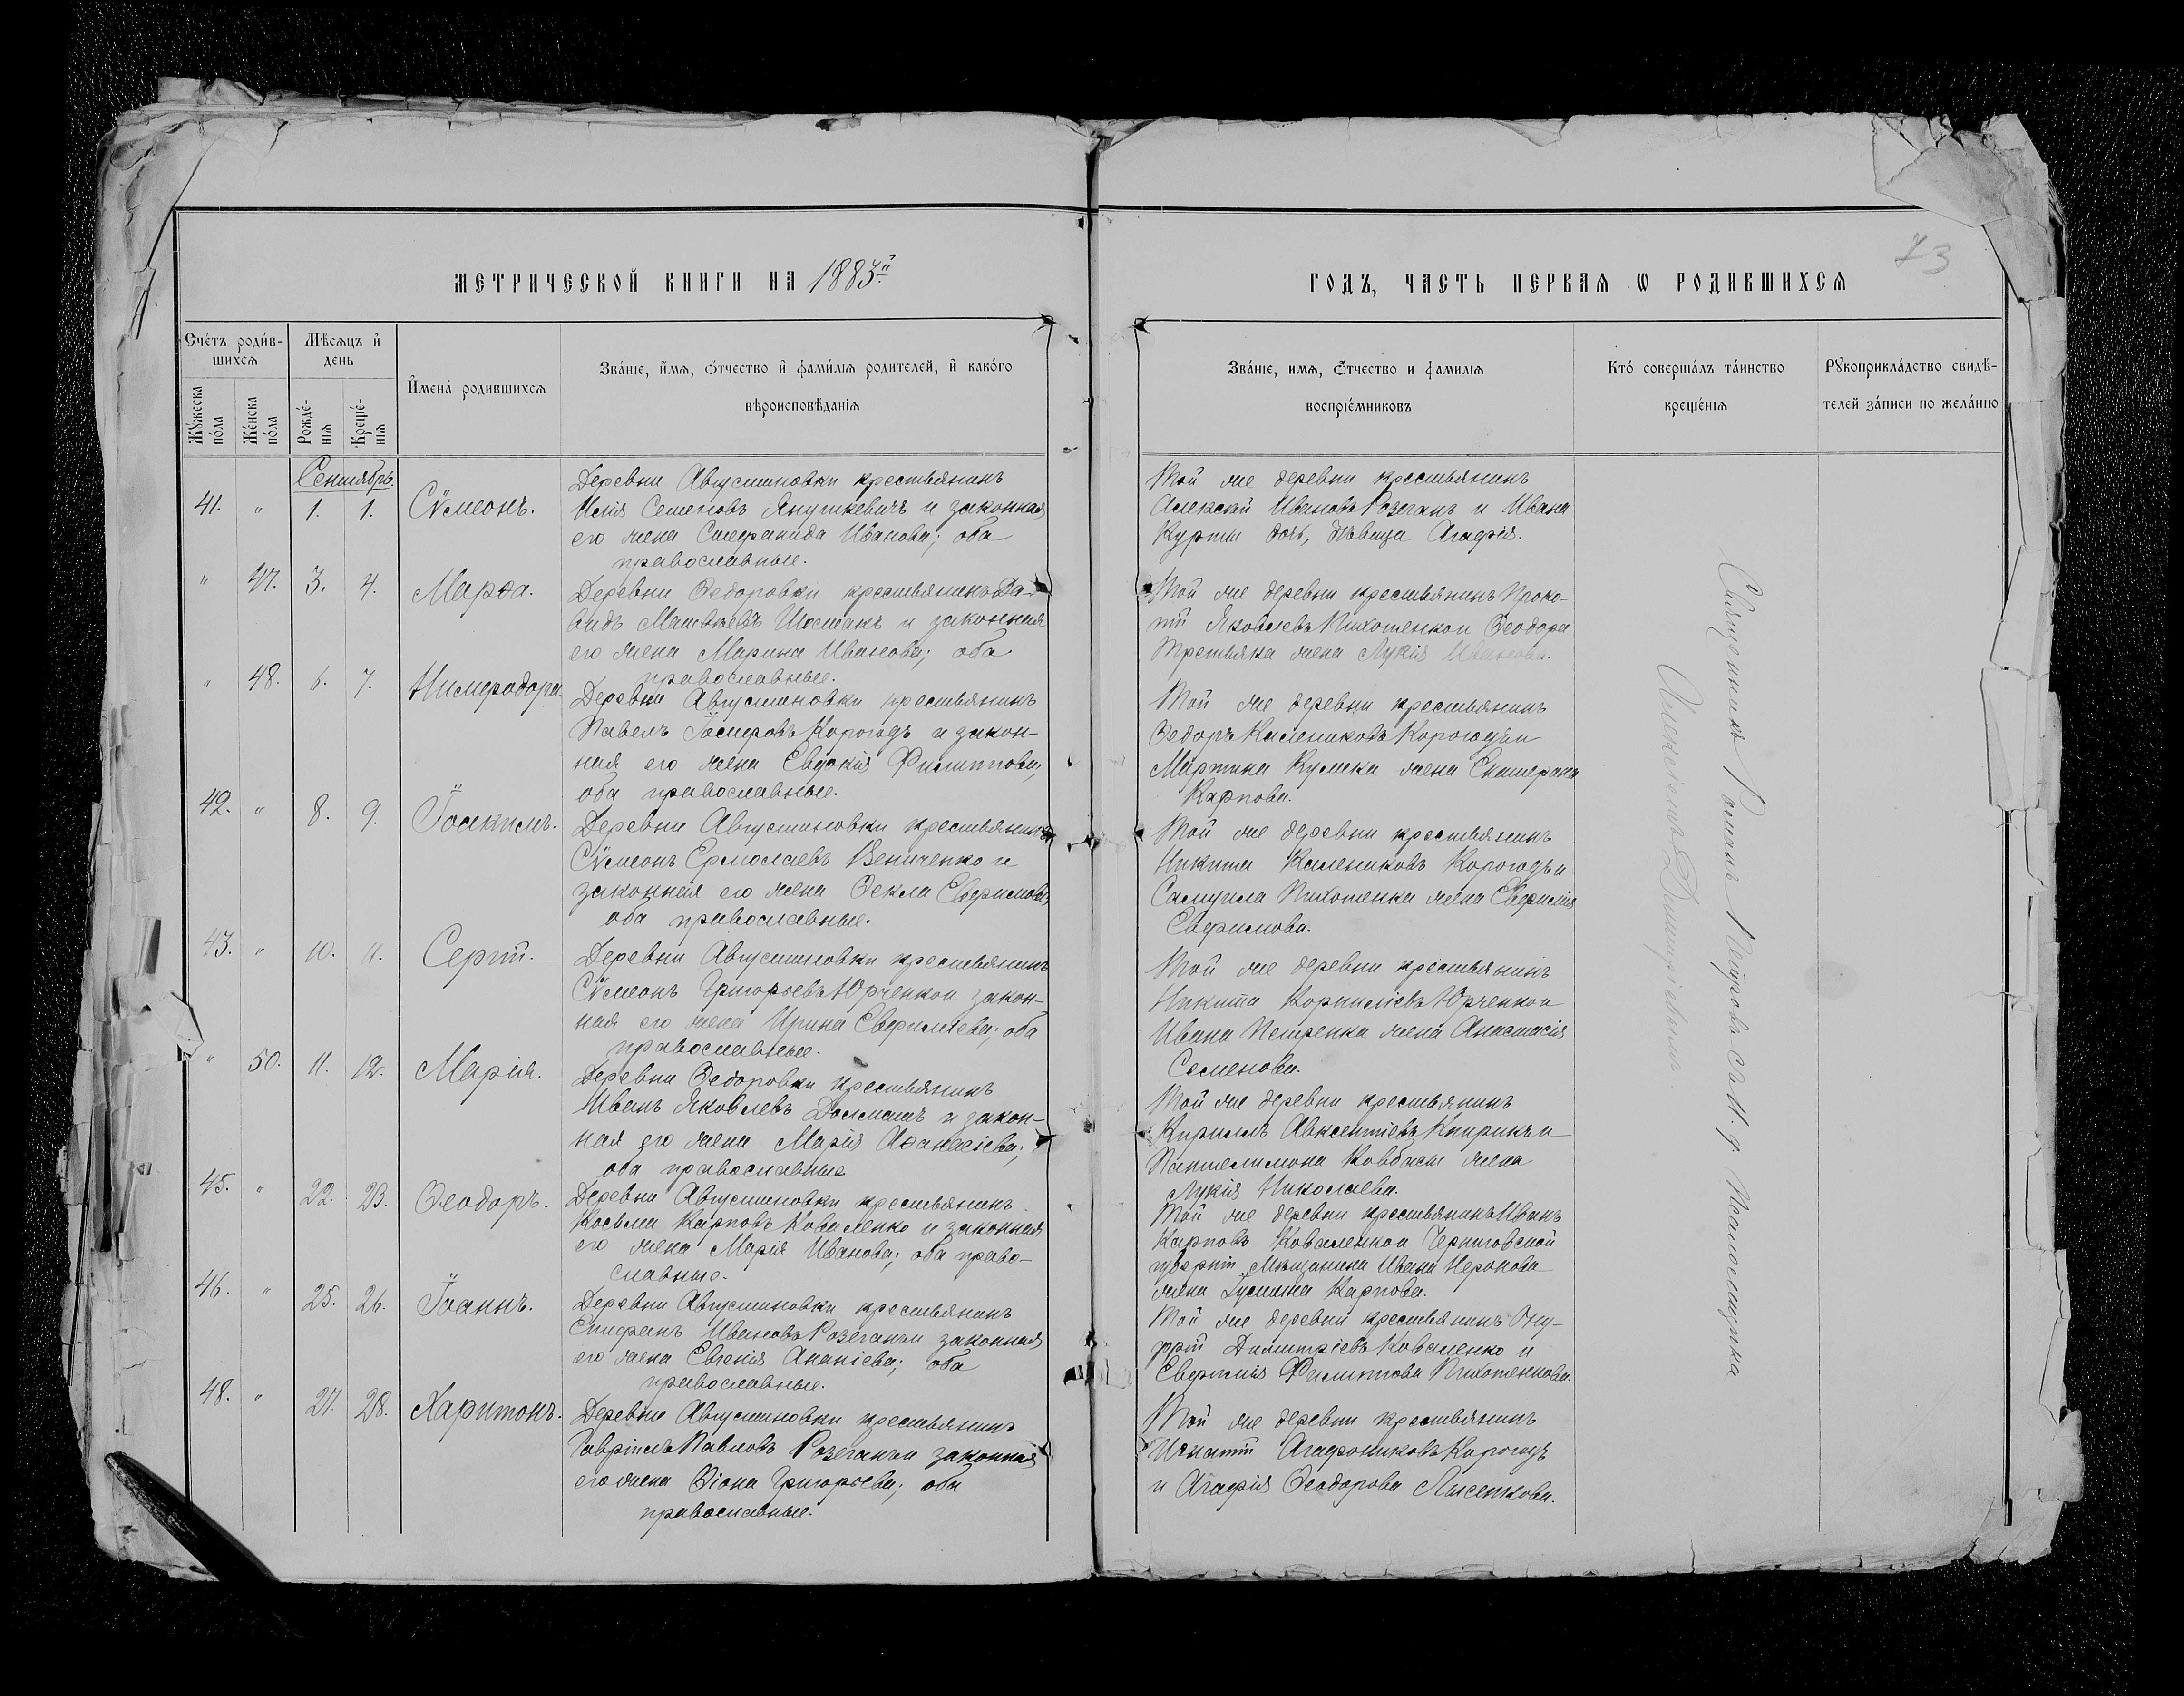 73
МЕТРИЧЕСКОЙ КНИГИ НА 1883й
ГОДЪ, ЧАСТЬ ПЕРВАЯ Ѡ РОДИВШИХСЯ
Счетъ родив-
шихся
Мужеска
пола
Женска
пола
Мѣсяцъ и
день
Рожде-
нія
Креще-
нія
Имена родившихся
Званіе, имя, отчество и фамилія родителей, и какого
вѣроисповѣданія
Званіе, имя, отчество и фамилія
воспріемниковъ
Кто совершалъ таинство
крещенія
Рукоприкладство свидѣ-
телей записи по желанію
Сентябрь.
41. " 1. 1. Сѵмеонъ.
Деревни Августиновки крестьянинъ
Илія Семеновъ Янушкевичъ и законная
его жена Стефанида Иванова; оба
православные.
Той же деревни крестьянинъ
Алексѣй Ивановъ Розеганъ и Ивана
Курты дочь, дѣвица Агафія.
" 47. 3. 4. Марѳа.
Деревни Ѳедоровки крестьянинъ Да-
видъ Матвѣевъ Шостакъ и законная
его жена Марина Иванова; оба
православные.
Той же деревни крестьянинъ Проко-
пій Яковлевъ Пихотенко и Ѳеодора
Третьяка жена Лукія Иванова.
" 48. 6. 7. Нимфодора.
Деревни Августиновки крестьянинъ
Павелъ Іосифовъ Корогодъ и закон-
ная его жена Евдокія Филиппова,
оба православные.
Той же деревни крестьянинъ
Ѳедоръ Калениковъ Корогодъ и
Мартина Кулика жена Екатерина
Карпова.
42. " 8. 9. Іоакимъ.
Деревни Августиновки крестьянинъ
Сѵмеонъ Ермолаевъ Величенко и
законная его жена Ѳекла Евфимова,
оба православные.
Той же деревни крестьянинъ
Никита Калениковъ Корогодъ и
Самуила Пихотенка жена Евфимія
Евфимова.
43. " 10. 11. Сергій.
Деревни Августиновки крестьянинъ
Сѵмеонъ Григорьевъ Юрченко и закон-
ная его жена Ирина Евфиміева; оба
православные.
Той же деревни крестьянинъ
Никита Корниліевъ Юрченко и
Ивана Петренка жена Анастасія
Семенова.
" 50. 11. 12. Марія.
Деревни Ѳедоровки крестьянинъ
Иванъ Яковлевъ Долматъ и закон-
ная его жена Марія Аѳанасіева;
оба православные
Той же деревни крестьянинъ
Кириллъ Авксентіевъ Кирикъ и
Пантелимона Ковбасы жена
Лукія Николаева.
45. " 22. 23. Ѳеодоръ.
Деревни Августиновки крестьянинъ
Косьма Карповъ Коваленко и законная
его жена Марія Иванова; оба право-
славные.
Той же деревни крестьянинъ Иванъ
Карповъ Коваленко и Черниговской
губерніи мѣщанина Ивана Неронова
жена Іустина Карпова.
46. " 25. 26. Іоаннъ.
Деревни Августиновки крестьянинъ
Епифанъ Ивановъ Розеганъ и законная
его жена Евгенія Ананіева; оба
православные.
Той же деревни крестьянинъ Ону-
фрій Димитріевъ Коваленко и
Евфимія Филиппова Пихотенкова.
48. " 27. 28. Харитонъ.
Деревни Августиновки крестьянинъ
Гавріилъ Павловъ Розеганъ и законная
его жена Ѳіона Григорьева; оба
православные.
Той же деревни крестьянинъ
Игнатій Агафониковъ Корогодъ
и Агафія Ѳеодорова Лысенкова.
Священникъ Романъ Петровъ съ И. д. Псаломщика
Алексіемъ Димитріевымъ